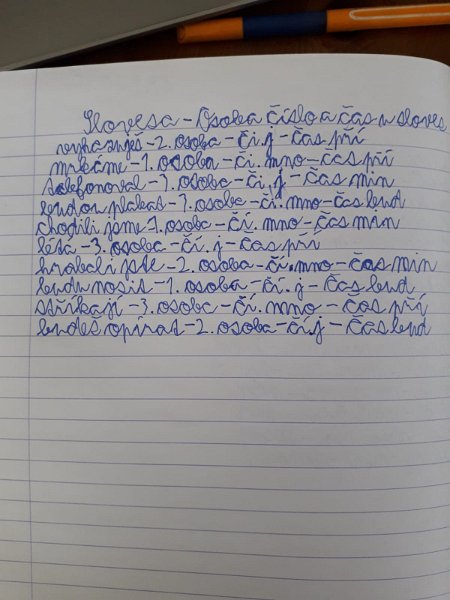 Slovesa - Osoba číslo a čas u sloves
vyhazuješ - 2. osoba - čí. j - čas pří
mrkáme - 1. osoba - čí. mno - čas pří
telefonoval - 3. osoba - čí. j - čas min
budou plakat - 3. osoba - čí. mno - čas bud
chodili jsme 1. osoba - čí. mno - čas min
létá - 3. osoba - čí. j - čas pří
hrabali jste - 2. osoba - čí. mno - čas min
budu nosit - 1. osoba - čí. j - čas bud
stříkají - 3. osoba - čí. mno - čas pří
budeš opírat - 2. osoba - čí. j - čas bud